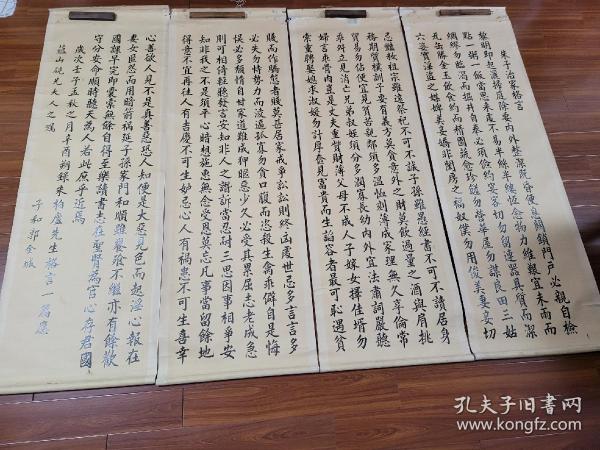 朱子治家格言
黎明即起灑掃庭除要內外整潔既昏便息關鎖門戶必親自檢
點一粥一飯當思來處不易半絲半縷恆念物力維艱宜未雨而
綢繆勿臨渴而掘井自奉必須儉約宴客切勿留連器具質而潔
瓦缶勝金玉飲食約而精園蔬愈珍饈勿營華屋勿謀良田三姑
六婆實淫盜之媒婢美妾嬌非閨房之福奴僕勿用俊美妻妾切
忌豔妝祖宗雖遠祭祀不可不誠子孫雖愚經書不可不讀居身
務期質樸訓子要有義方莫貪意外之財莫飲過量之酒與肩挑
貿易勿佔便宜見貧苦親鄰須多溫恤刻薄成家理無久享倫常
乖舛立見消亡兄弟叔姪須分多潤寡長幼內外宜法肅詞嚴聽
婦言乖骨肉豈是丈夫重貲財薄父母不成人子嫁女擇佳婿勿
索重聘娶媳求淑媛勿計厚奩見富貴而生諂容者最可恥遇貧
賤而作驕態者賤莫甚居家戒爭訟訟則終凶處世忌多言言多
必失勿恃勢力而凌逼孤寡勿貪口腹而恣殺生禽乖僻自是悔
悮必多頹惰自甘家道難成狎暱惡少久必受其累屈志老成急
則可相倚輕聽發言安知非人之譖訴當忍耐三思因事相爭安
知非我之不是須平心暗想施惠無念受恩莫忘凡事當留餘地
得意不宜再往人有喜慶不可生妒忌心人有禍患不可生喜幸
心善欲人見不是真善惡恐人知便是大惡見色而起淫心報在
妻女匿怨而用暗箭禍延子孫家門和順雖饔飧不繼亦有餘歡
國課早完即囊橐無餘自得至樂讀書志在聖賢為官心存君國
守分安命順時聽天為人若此庶乎近焉
歲次壬子孟秋之月辛酉節錄朱柏廬先生格言一篇應
山硯兄夫人之囑
子和郭全城
孔夫子旧书网
www.kongfz.com